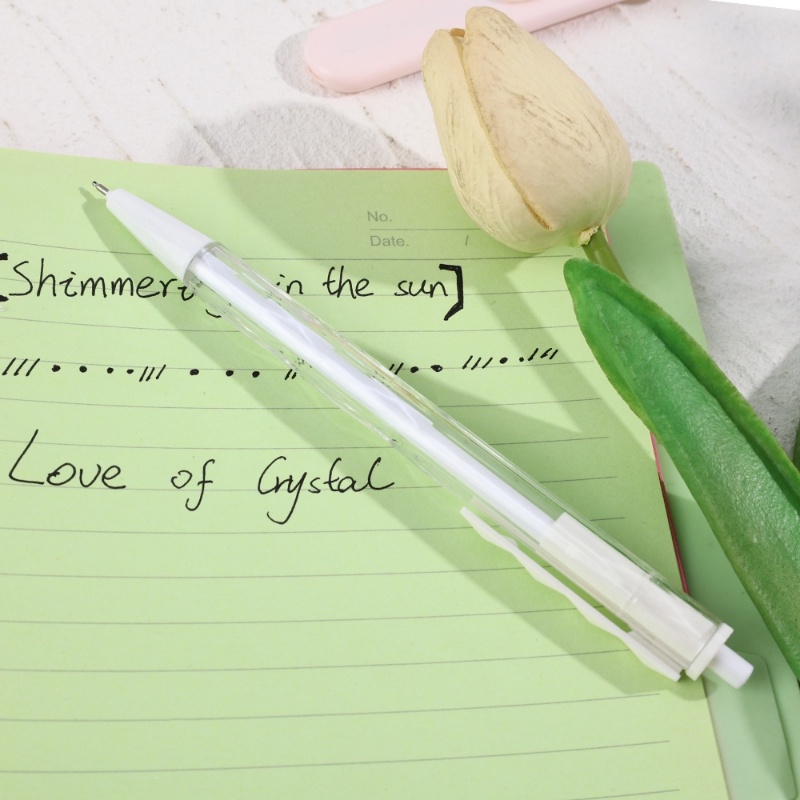 No.
Date. /
[Shimmering in the sun]
Love of Crystal